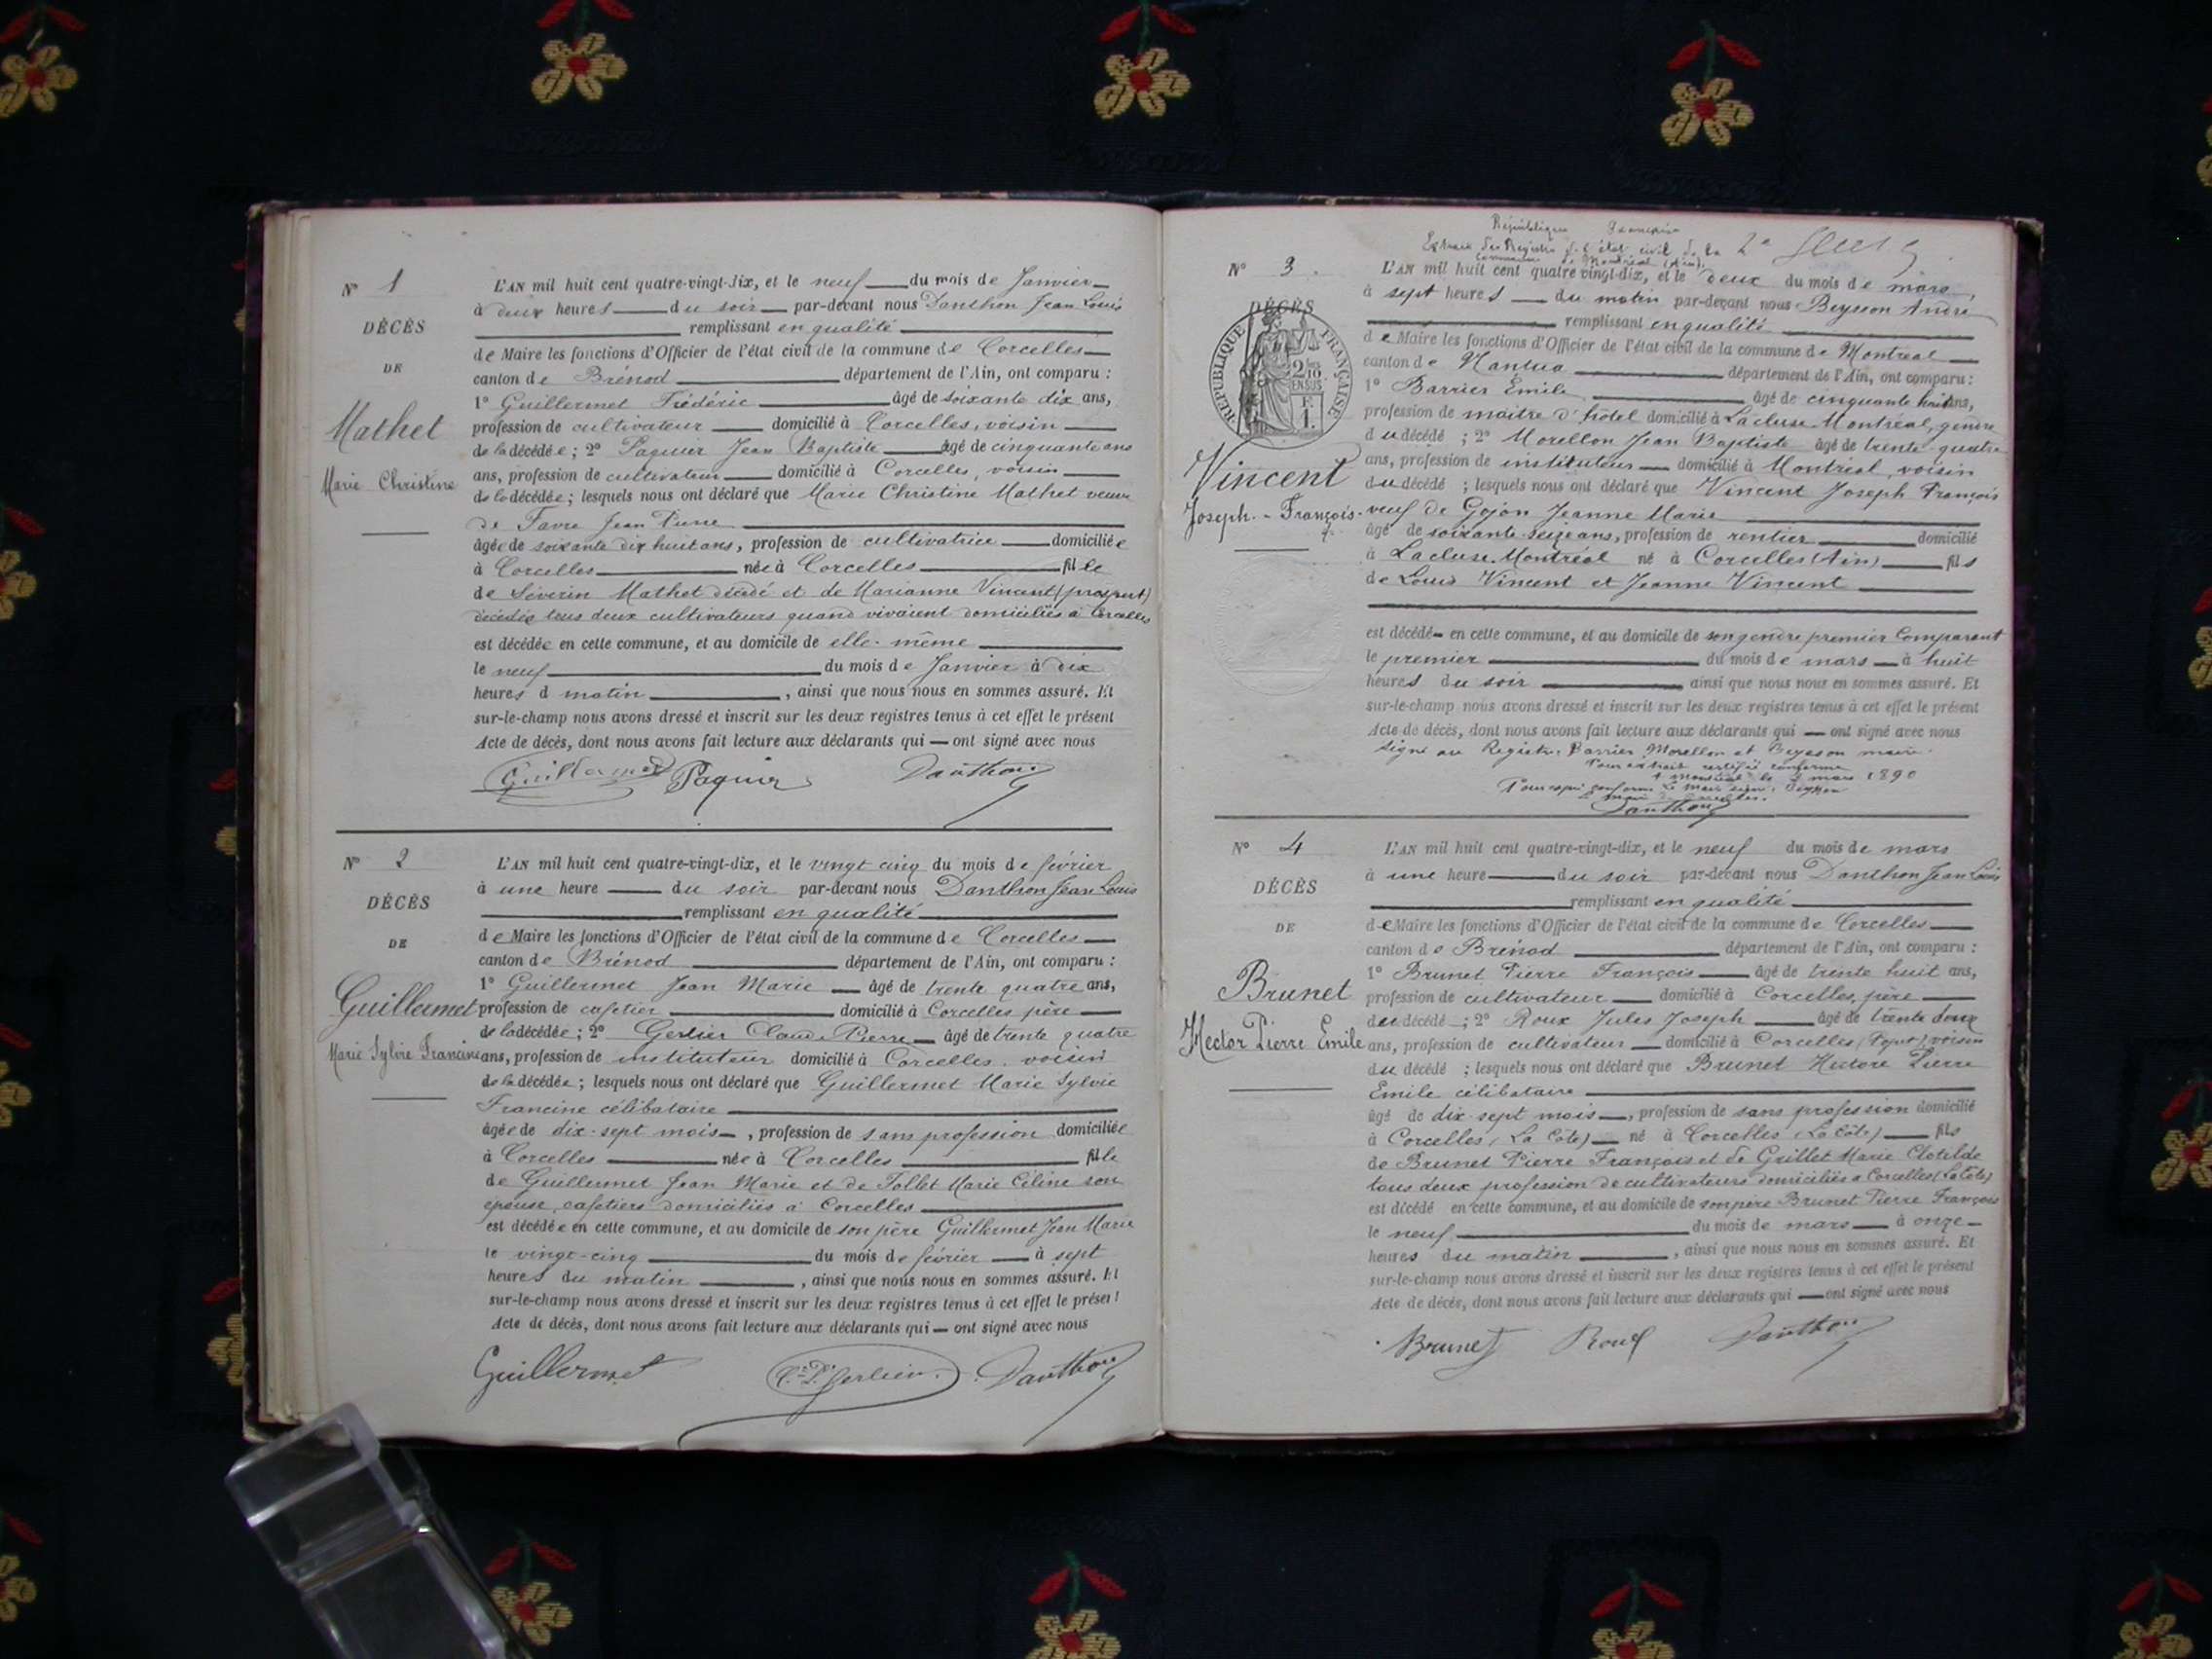 N° 1
DÉCÈS
DE
Mathet
Marie Christine
L'AN mil huit cent quatre-vingt-dix, et le neuf du mois de Janvier
à deux heures du soir par-devant nous Danthon Jean Louis
remplissant en qualité
de Maire les fonctions d'Officier de l'état civil de la commune de Corcelles
canton de Brénod département de l'Ain, ont comparu :
1° Guillermet Frédéric âgé de soixante dix ans,
profession de cultivateur domicilié à Corcelles, voisin
de la décédée ; 2° Paquier Jean Baptiste âgé de cinquante ans
ans, profession de cultivateur domicilié à Corcelles, voisin
de la décédée ; lesquels nous ont déclaré que Marie Christine Mathet veuve
de Favre Jean Pierre
âgée de soixante dix huit ans, profession de cultivatrice domiciliée
à Corcelles née à Corcelles fille
de Séverin Mathet décédé et de Marianne Vincent
décédés tous deux cultivateurs quand vivaient domiciliés à Corcelles
est décédée en cette commune, et au domicile de elle-même
le neuf du mois de Janvier à dix
heures d matin , ainsi que nous nous en sommes assuré. Et
sur-le-champ nous avons dressé et inscrit sur les deux registres tenus à cet effet le présent
Acte de décès, dont nous avons fait lecture aux déclarants qui ont signé avec nous
Guillermet Paquier Danthon
N° 2
DÉCÈS
DE
Guillermet
Marie Sylvie Francine
L'AN mil huit cent quatre-vingt-dix, et le vingt cinq du mois de février
à une heure du soir par-devant nous Danthon Jean Louis
remplissant en qualité
de Maire les fonctions d'Officier de l'état civil de la commune de Corcelles
canton de Brénod département de l'Ain, ont comparu :
1° Guillermet Jean Marie âgé de trente quatre ans,
profession de cafetier domicilié à Corcelles père
de la décédée ; 2° Gerlier Claude Pierre âgé de trente quatre
ans, profession de instituteur domicilié à Corcelles, voisin
de la décédée ; lesquels nous ont déclaré que Guillermet Marie Sylvie
Francine célibataire
âgée de dix-sept mois , profession de sans profession domiciliée
à Corcelles née à Corcelles fille
de Guillermet Jean Marie et de Tollet Marie Céline son
épouse, cafetiers domiciliés à Corcelles
est décédée en cette commune, et au domicile de son père Guillermet Jean Marie
le vingt-cinq du mois de février à sept
heures du matin , ainsi que nous nous en sommes assuré. Et
sur-le-champ nous avons dressé et inscrit sur les deux registres tenus à cet effet le présent
Acte de décès, dont nous avons fait lecture aux déclarants qui ont signé avec nous
Guillermet C. P. Gerlier Danthon
République Française
Extrait des Registres de l'état civil de la
commune de Montréal (Ain).
N° 3.
DÉCÈS
RÉPUBLIQUE FRANÇAISE
2/10
EN SUS
F.
1.
Vincent
Joseph-François
L'AN mil huit cent quatre vingt-dix, et le deux du mois de mars,
à sept heures du matin par-devant nous Beysson André
remplissant en qualité
de Maire les fonctions d'Officier de l'état civil de la commune de Montréal
canton de Nantua département de l'Ain, ont comparu :
1° Barrier Emile âgé de cinquante huit ans,
profession de maître d'hôtel domicilié à Lacluse Montréal, gendre
du décédé ; 2° Morellon Jean Baptiste âgé de trente-quatre
ans, profession de instituteur domicilié à Montréal, voisin
du décédé ; lesquels nous ont déclaré que Vincent Joseph François
veuf de Gojon Jeanne Marie
âgé de soixante-seize ans, profession de rentier domicilié
à Lacluse Montréal né à Corcelles (Ain) fils
de Louis Vincent et Jeanne Vincent
est décédé en cette commune, et au domicile de son gendre premier Comparant
le premier du mois de mars à huit
heures du soir ainsi que nous nous en sommes assuré. Et
sur-le-champ nous avons dressé et inscrit sur les deux registres tenus à cet effet le présent
Acte de décès, dont nous avons fait lecture aux déclarants qui ont signé avec nous
Signé au Registre : Barrier Morellon et Beysson maire.
Pour extrait certifié conforme
à Montréal le mars 1890
Pour copie conforme Le Maire signé : Beysson
Danthon
N° 4
DÉCÈS
DE
Brunet
Hector Pierre Emile
L'AN mil huit cent quatre-vingt-dix, et le neuf du mois de mars
à une heure du soir par-devant nous Danthon Jean Louis
remplissant en qualité
de Maire les fonctions d'Officier de l'état civil de la commune de Corcelles
canton de Brénod département de l'Ain, ont comparu :
1° Brunet Pierre François âgé de trente huit ans,
profession de cultivateur domicilié à Corcelles, père
du décédé ; 2° Roux Jules Joseph âgé de trente deux
ans, profession de cultivateur domicilié à Corcelles voisin
du décédé ; lesquels nous ont déclaré que Brunet Hectore Pierre
Emile célibataire
âgé de dix-sept mois , profession de sans profession domicilié
à Corcelles (La Côte) né à Corcelles (La Côte) fils
de Brunet Pierre François et de Grillet Marie Clotilde
tous deux profession de cultivateurs domiciliés à Corcelles (La Côte)
est décédé en cette commune, et au domicile de son père Brunet Pierre François
le neuf du mois de mars à onze
heures du matin , ainsi que nous nous en sommes assuré. Et
sur-le-champ nous avons dressé et inscrit sur les deux registres tenus à cet effet le présent
Acte de décès, dont nous avons fait lecture aux déclarants qui ont signé avec nous
Brunet Roux Danthon